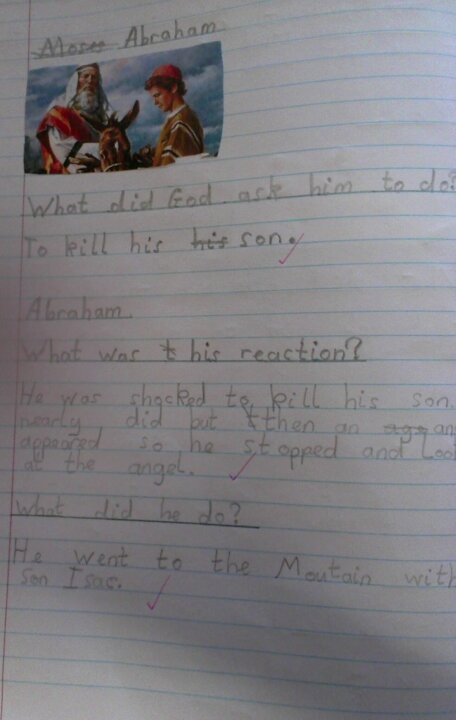 Moses Abraham
What did God ask him to do?
To kill his his son.
Abraham.
What was t his reaction?
He was shocked to kill his son.
nearly did but then an
appeared so he stopped and
at the angel.
What did he do?
He went to the Moutain with
son Isac.